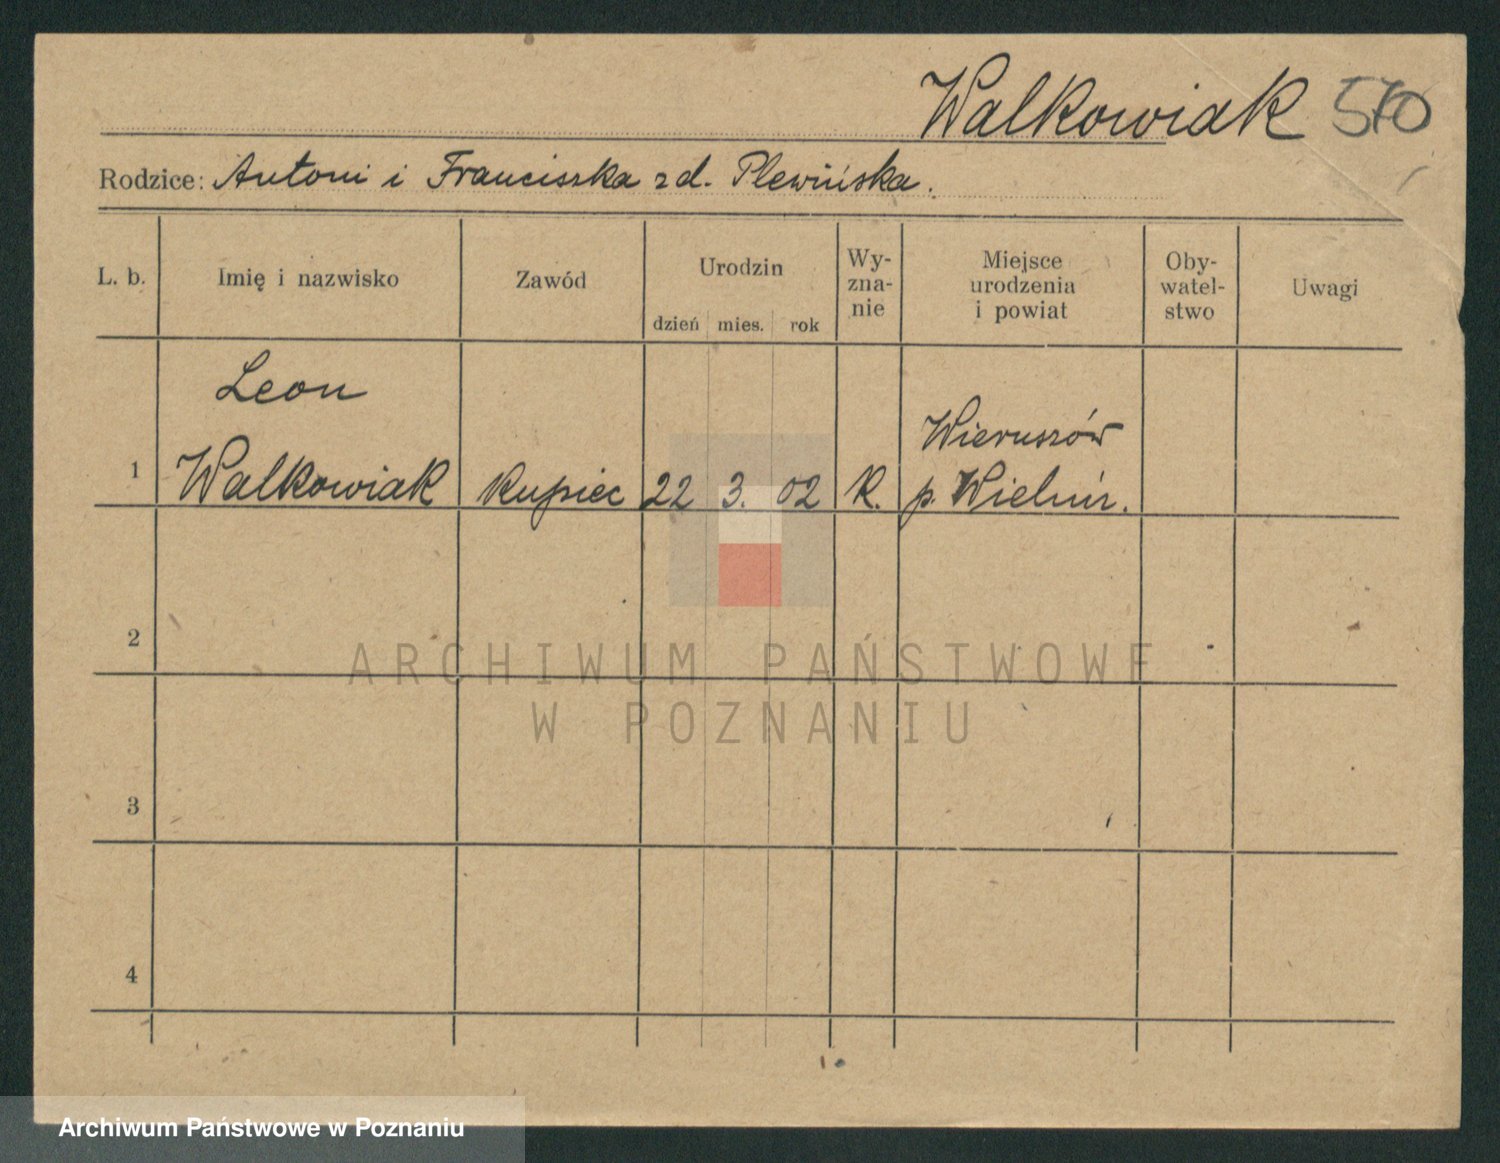 Walkowiak 570
Rodzice: Antoni i Franciszka zd. Plewińska.
L. b. Imię i nazwisko Zawód Urodzin Wy-zna-nie Miejsce urodzenia i powiat Oby-watel-stwo Uwagi
dzień mies. rok
Leon
Wieruszów
1 Walkowiak kupiec 22 3. 02 k. p. Wieluń.
2
ARCHIWUM PAŃSTWOWE
W POZNANIU
3
4
Archiwum Państwowe w Poznaniu